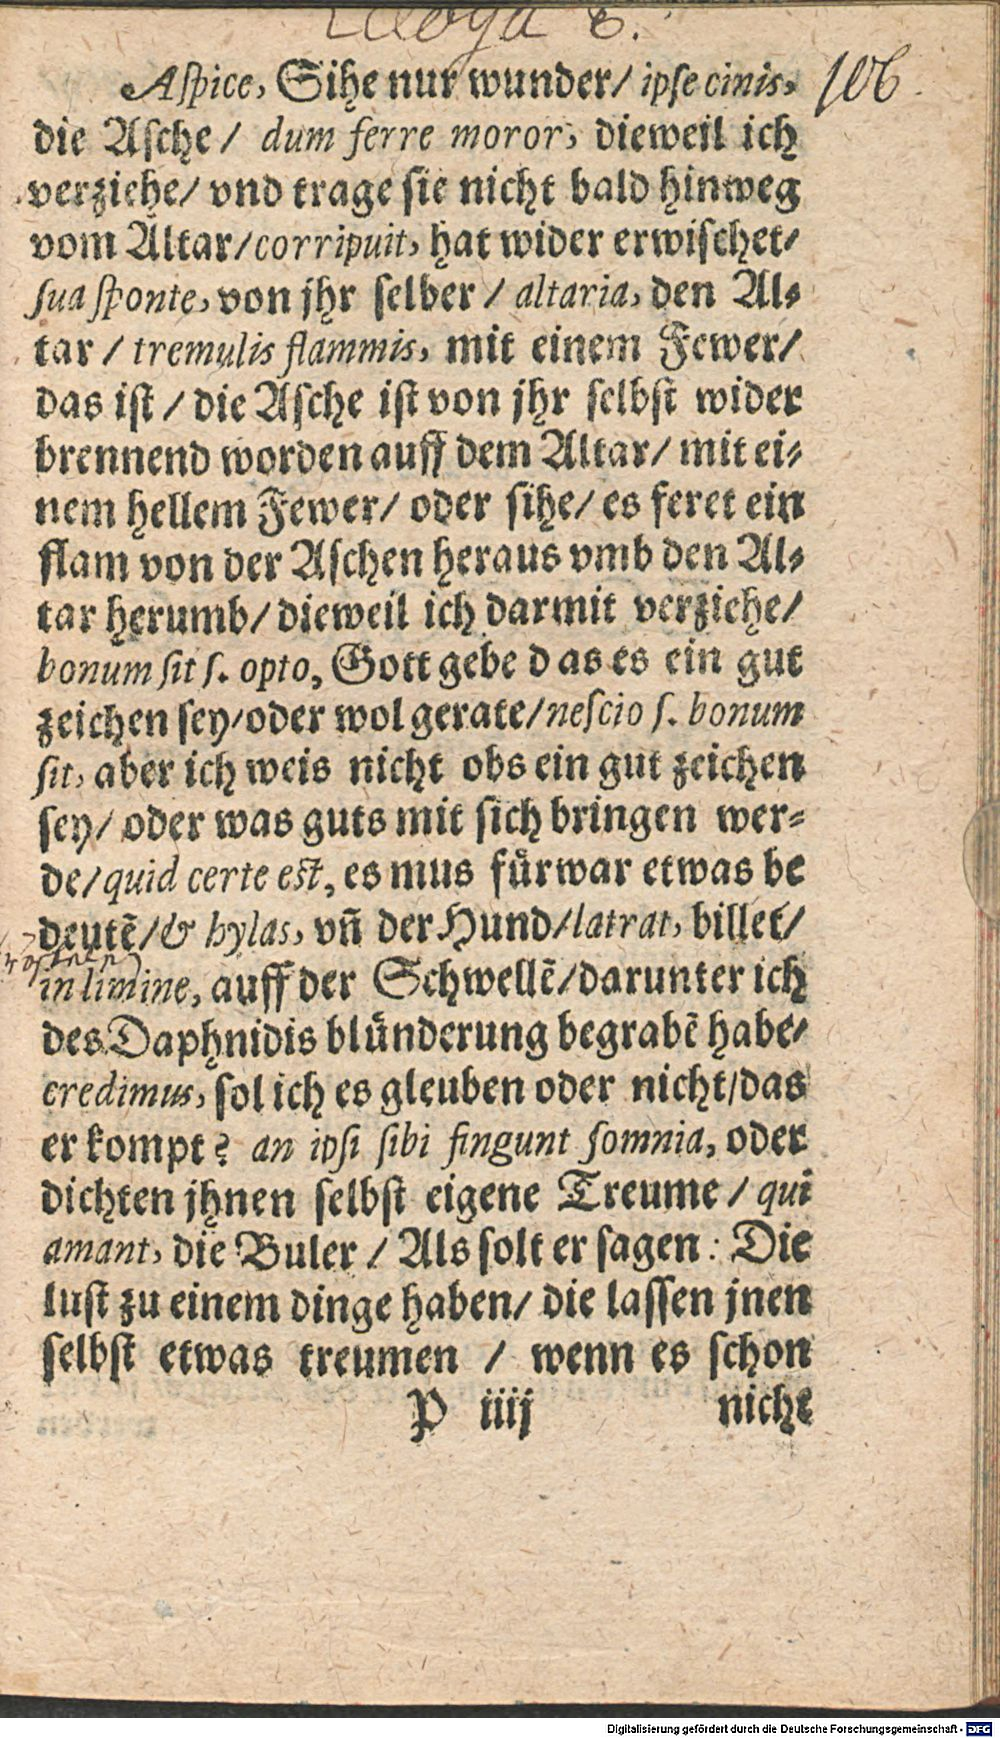 106
Aſpice, Sihe nur wunder/ ipſe cinis,
die Aſche/ dum ferre moror, dieweil ich
verziehe/ vnd trage sie nicht bald hinweg
vom Altar/ corripuit, hat wider erwiſchet/
ſua ſponte, von jhr ſelber/ altaria, den Al-
tar/ tremulis flammis, mit einem Fewer/
das iſt/ die Aſche iſt von jhr ſelbſt wider
brennend worden auff dem Altar/ mit ei-
nem hellem Fewer/ oder ſihe/ es feret ein
flam von der Aſchen heraus vmb den Al-
tar herumb/ dieweil ich darmit verziehe/
bonum ſit ſ. opto, Gott gebe das es ein gut
zeichen ſey/ oder wol gerate/ neſcio ſ. bonum
ſit, aber ich weis nicht obs ein gut zeichen
ſey/ oder was guts mit ſich bringen wer-
de/ quid certe eſt, es mus fürwar etwas be
deutẽ/ & hylas, vñ der Hund/ latrat, billet/
in limine, auff der Schwellẽ/ darunter ich
des Daphnidis blünderung begrabẽ habe/
credimus, ſol ich es gleuben oder nicht/ das
er kompt? an ipſi ſibi fingunt ſomnia, oder
dichten jhnen ſelbſt eigene Treume/ qui
amant, die Buler/ Als ſolt er ſagen: Die
luſt zu einem dinge haben/ die laſſen jnen
ſelbſt etwas treumen/ wenn es ſchon
P iiij nicht
Digitalisierung gefördert durch die Deutsche Forschungsgemeinschaft - DFG